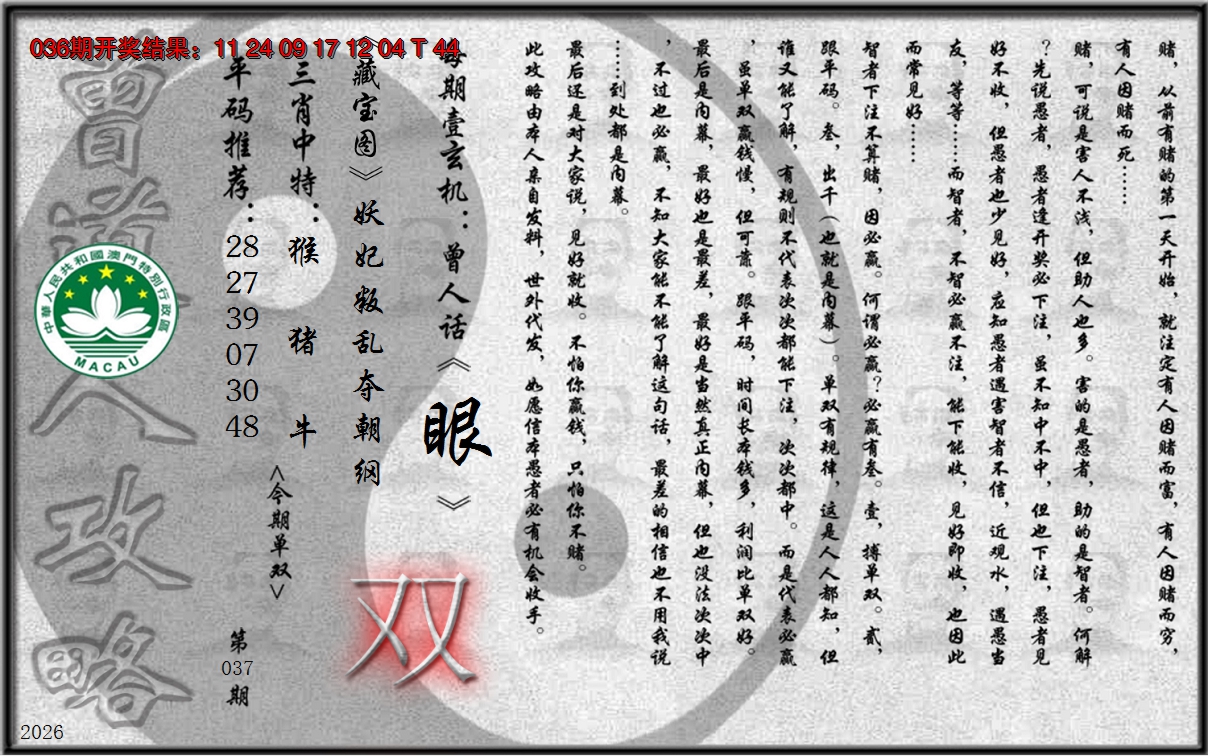 036期开奖结果：11 24 09 17 12 04 T 44
赌，从前有赌的第一天开始，就注定有人因赌而富，有人因赌而穷，
有人因赌而死……
赌，可说是害人不浅，但助人也多。害的是愚者，助的是智者。何解
？先说愚者，愚者逢开奖必下注，虽不知中不中，但也下注，愚者见
好不收，但愚者也少见好，应知愚者遇害智者不信，近观水，遇愚当
友，等等……而智者，不智必赢不注，能下能收，见好即收，也因此
而常见好……
智者下注不算赌，因必赢。何谓必赢？必赢有叁。壹，搏单双。贰，
跟平码。叁，出千（也就是内幕）。单双有规律，这是人人都知，但
谁又能了解，有规则不代表次次都能下注，次次都中。而是代表必赢
，虽单双赢钱慢，但可靠。跟平码，时间长本钱多，利润比单双好。
最后是内幕，最好也是最差，最好是当然真正内幕，但也没法次次中
，不过也必赢，不知大家能不能了解这句话，最差的相信也不用我说
……到处都是内幕。
最后还是对大家说，见好就收。不怕你赢钱，只怕你不赌。
此攻略由本人亲自发料，世外代发，如愿信本愚者必有机会收手。
每期壹玄机：曾人话《眼》
《藏宝图》妖妃叛乱夺朝纲
双
三肖中特：猴 猪 牛
<今期单双>
平码推荐：28 27 39 07 30 48
第037期
曾道人攻略
中華人民共和國澳門特別行政區
MACAU
2026